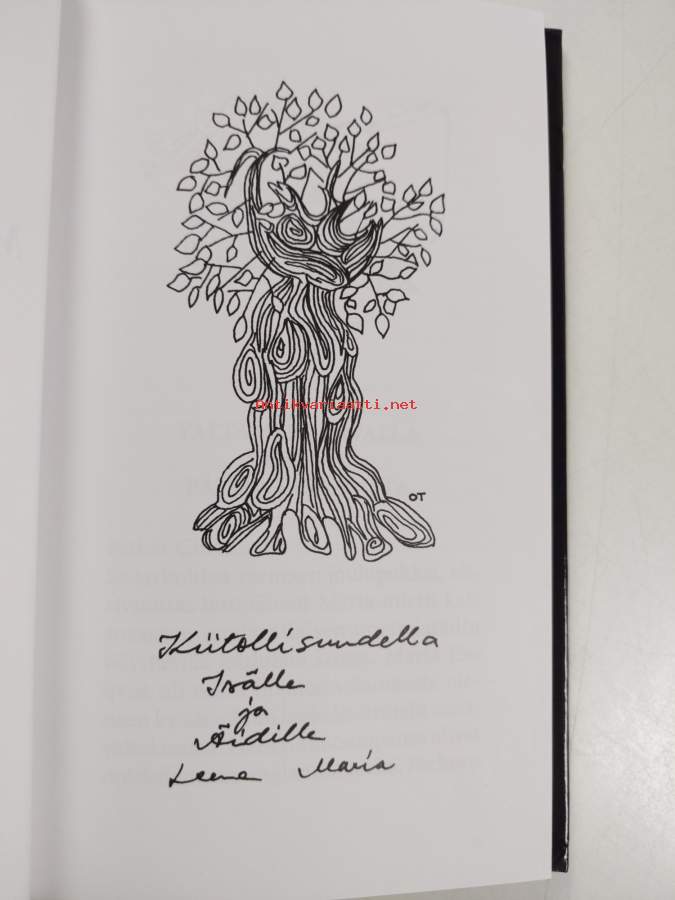 Antikvariaatti.net
OT
Kiitollisuudella
Isälle
ja
Äidille
Leena Maria